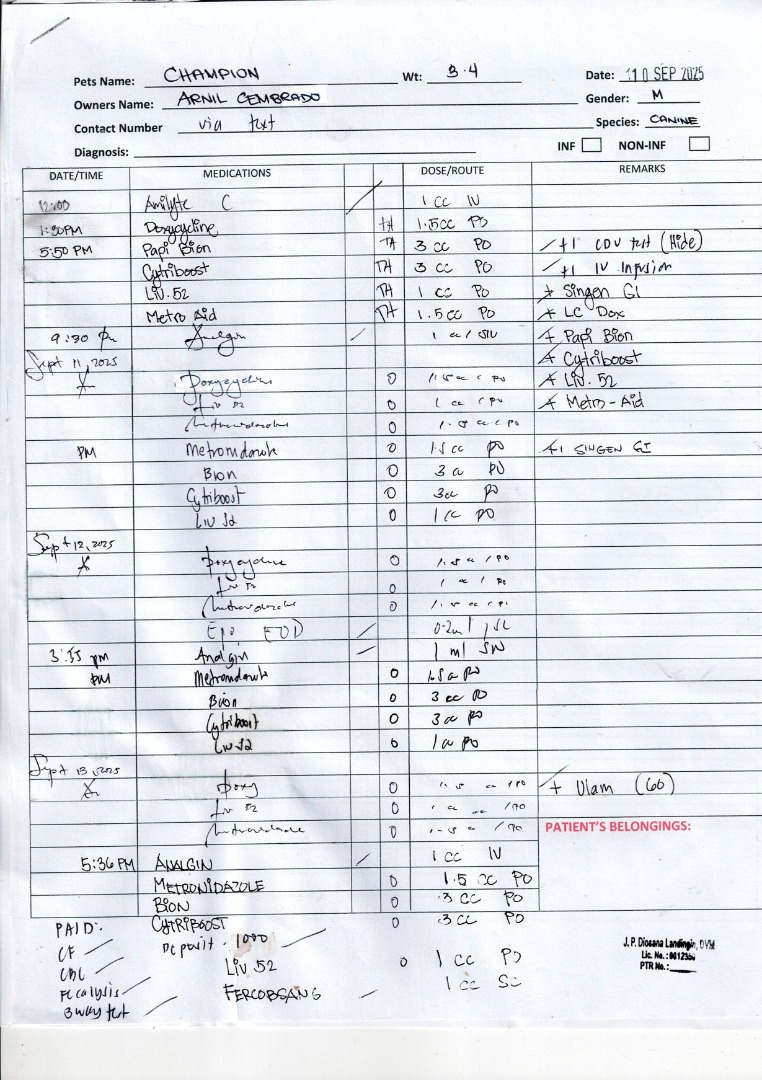 Pets Name: CHAMPION Wt: 3.4 Date: 10 SEP 2025
Owners Name: ARNIL CEMBRADO Gender: M
Contact Number via text Species: CANINE
Diagnosis: INF NON-INF
DATE/TIME MEDICATIONS DOSE/ROUTE REMARKS
12:00 Amilyte C 1 cc IV
1:30PM Doxycycline TH 1.5cc PO
5:50 PM Papi Bion TH 3 cc PO +1 CDV test (Hide)
Cytriboost TH 3 cc PO +1 IV Infusion
Liv.52 TH 1 cc PO + Singen GI
Metro Aid TH 1.5 cc PO + LC Dox
9:30 pm Analgin + Papi Bion
Sept 11, 2025 + Cytriboost
Doxycycline 0 1.5 cc / PO + Liv.52
Liv 52 0 1 cc / PO + Metro-Aid
Metronidazole 0 1.5 cc / PO
PM Metronidazole 0 1.5 cc PO +1 SINGEN GI
Bion 0 3 cc PO
Cytriboost 0 3cc PO
Liv 52 0 1 cc PO
Sept 12, 2025
Doxycycline 0 1.5 cc / PO
Liv 52 0 1 cc / PO
Metronidazole 0 1.5 cc / PO
EOD 0.2ml SC
3:35 pm Analgin 1 ml
PM Metronidazole 0 1.5 cc PO
Bion 0 3 cc PO
Cytriboost 0 3 cc PO
Liv 52 0 1 cc PO
Sept 13, 2025
Doxy 0 1.5 cc / PO + Ulam (60)
Liv 52 0 1 cc / PO
Metronidazole 0 1.5 cc / PO PATIENT'S BELONGINGS:
5:36 PM ANALGIN 1 cc IV
METRONIDAZOLE 0 1.5 cc PO
BION 0 3 cc PO
CYTRIBOOST 0 3 cc PO
PAID:
Deposit - 1000
CF
CBC
Liv. 52 0 1 cc PO
Fecalysis
FERCOBSANG 1 cc SC
3 way test
J. P. Diosana Landingin, DVM
Lic. No.: 0012350
PTR No.: